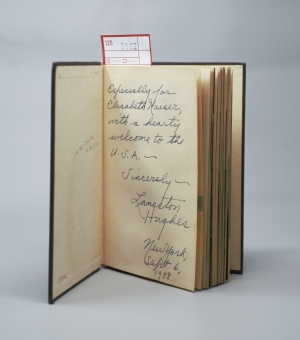 Especially for
Elisabeth Kaiser,
with a hearty
welcome to the
U.S.A. —
Sincerely —
Langston
Hughes
New York,
Sept. 6,
1938